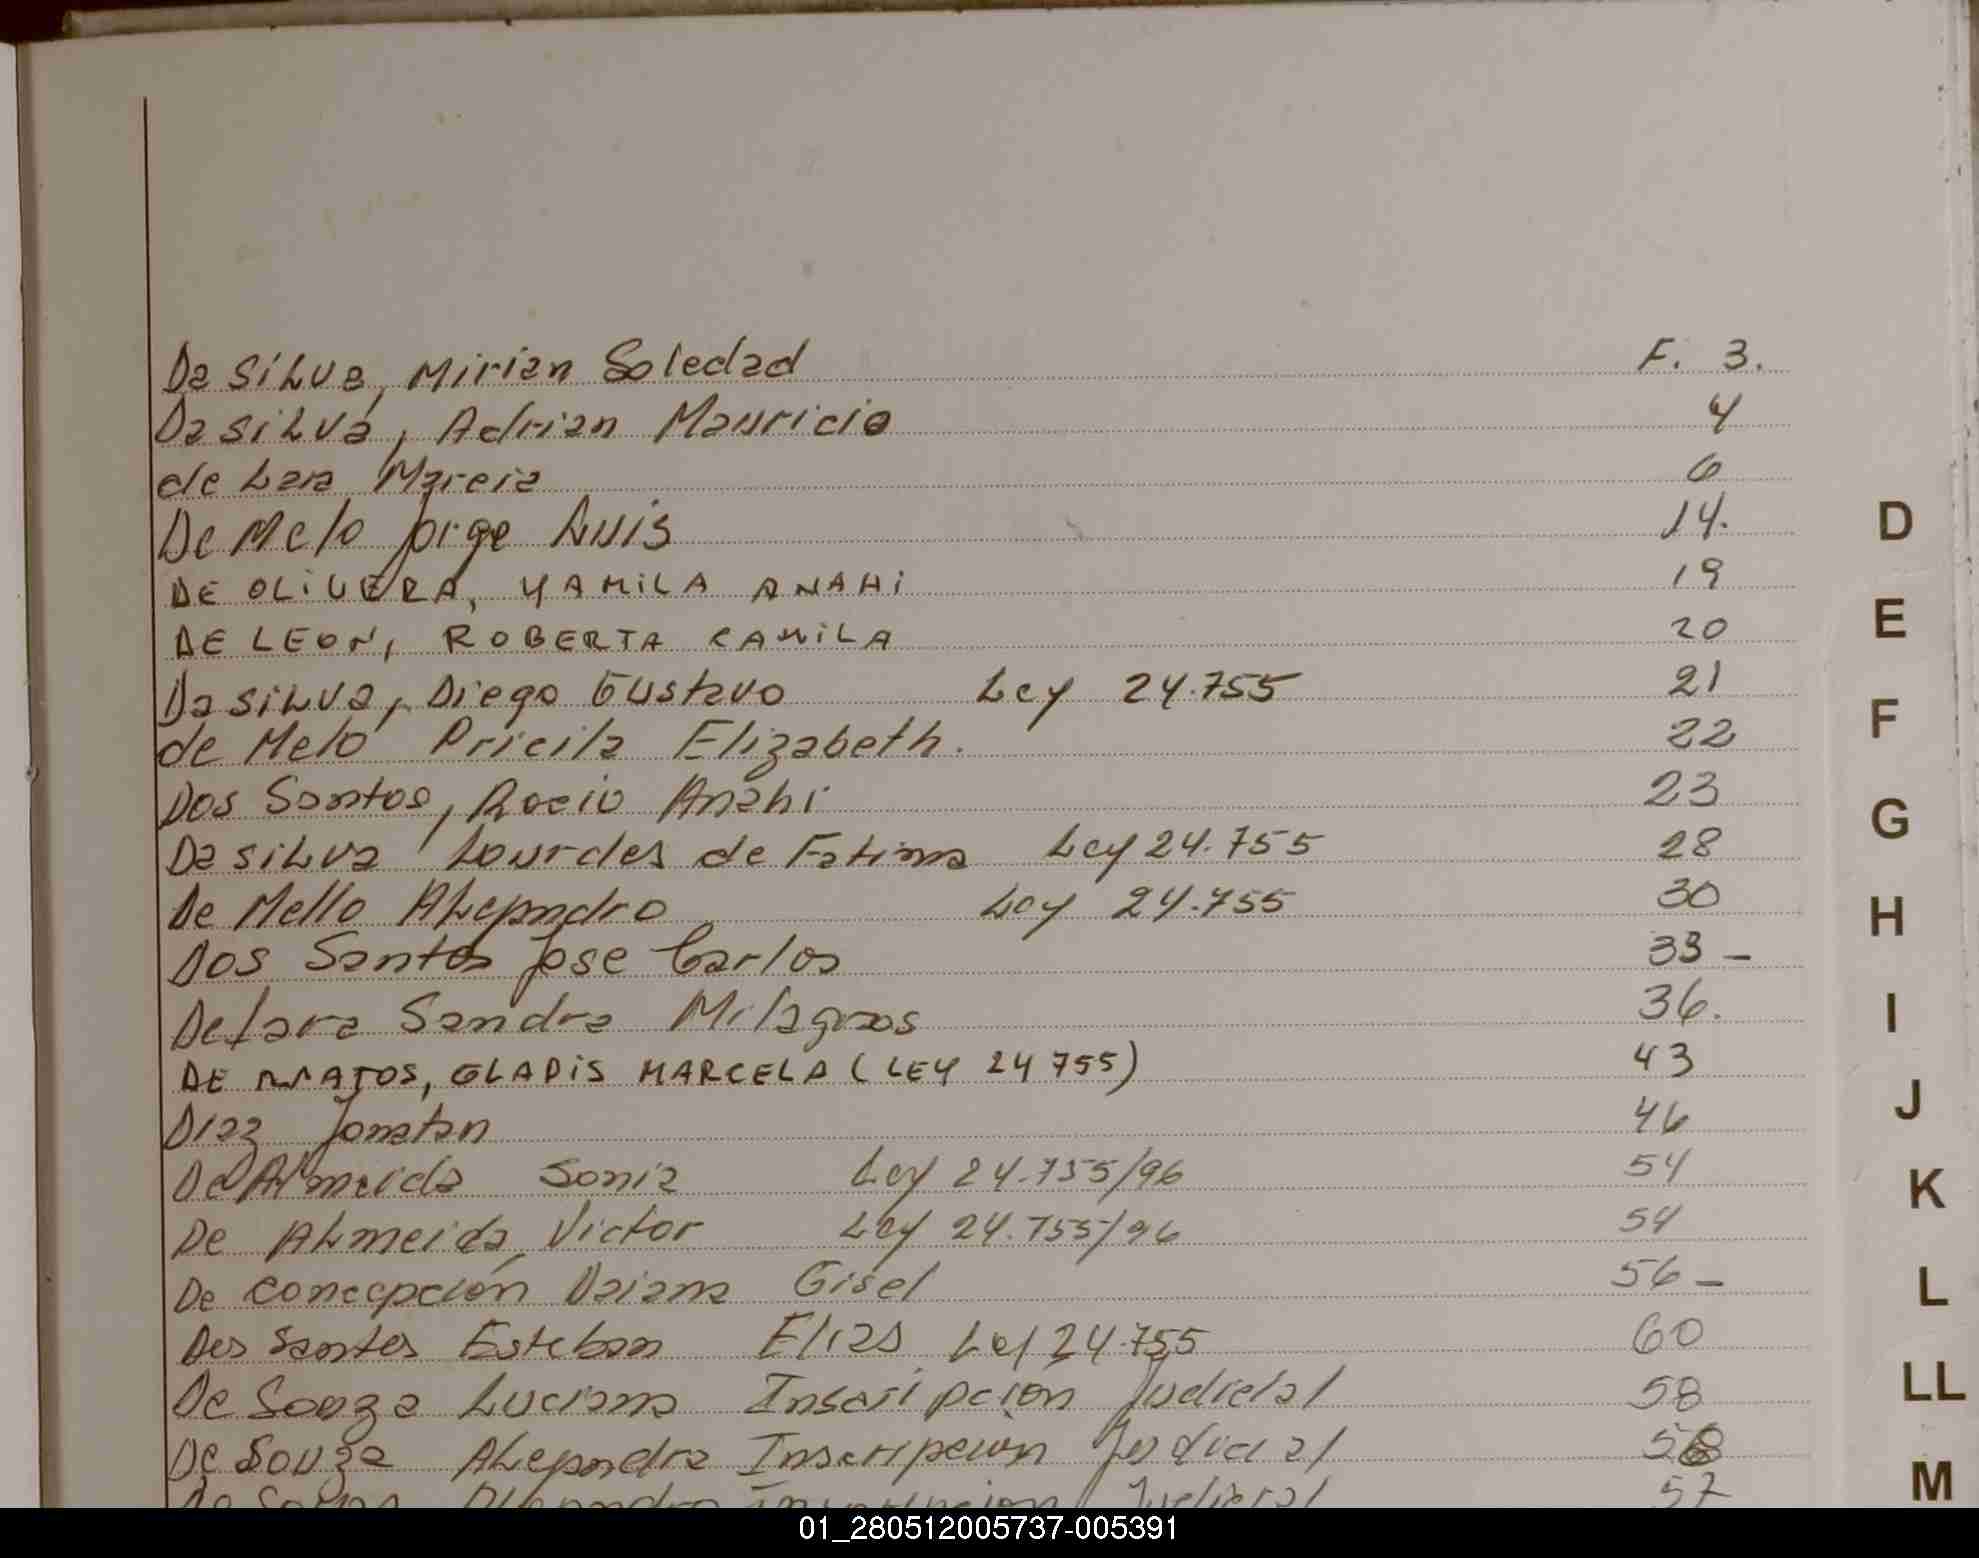 Da Silva, Mirian Soledad F. 3.
Da Silva, Adrian Mauricio 4
de Lara Marcia 6
De Melo Jorge Luis 14.
DE OLiVERA, YAMiLA ANAHi 19
DE LEON, ROBERTA CAMiLA 20
Da Silva, Diego Gustavo Ley 24.755 21
de Melo Pricila Elizabeth. 22
Dos Santos, Rocio Anahi 23
Da Silva Lourdes de Fatima Ley 24.755 28
De Mello Alejandro Ley 24.755 30
Dos Santos Jose Carlos 33 -
De Lara Sandra Milagros 36.
DE MATOS, GLADiS MARCELA (LEY 24755) 43
Diaz Jonatan 46
De Almeida Sonia Ley 24.755/96 54
De Almeida, Victor Ley 24.755/96 54
De Concepción Daiana Gisel 56 -
Dos Santos Esteban Elias Ley 24.755 60
De Souza Luciana Inscripción Judicial 58
De Souza Alejandra Inscripcion Judicial
Alejandro Inscripcion Judicial 57
D
E
F
G
H
I
J
K
L
LL
M
01_280512005737-005391